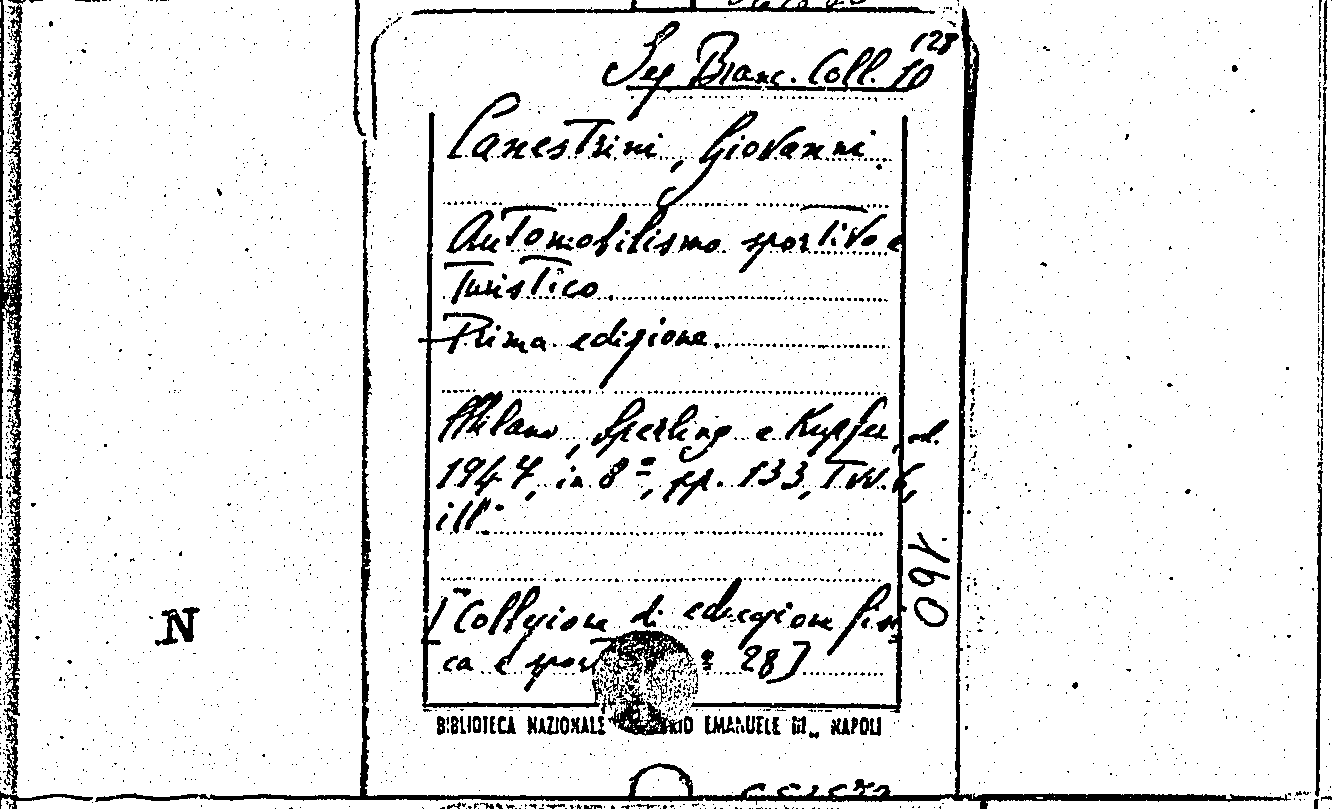 Sep Branc. Coll. 128
10
Canestrini, Giovanni.
Automobilismo sportivo e
Turistico.
Prima edizione.
Milano, Sperling e Kupfer, ed.
1947, in 8º, pp. 133, Tvv. 6,
ill.
[Collezione di educazione fisi
ca e sport º 28]
160
N
BIBLIOTECA NAZIONALE EMANUELE III„ NAPOLI